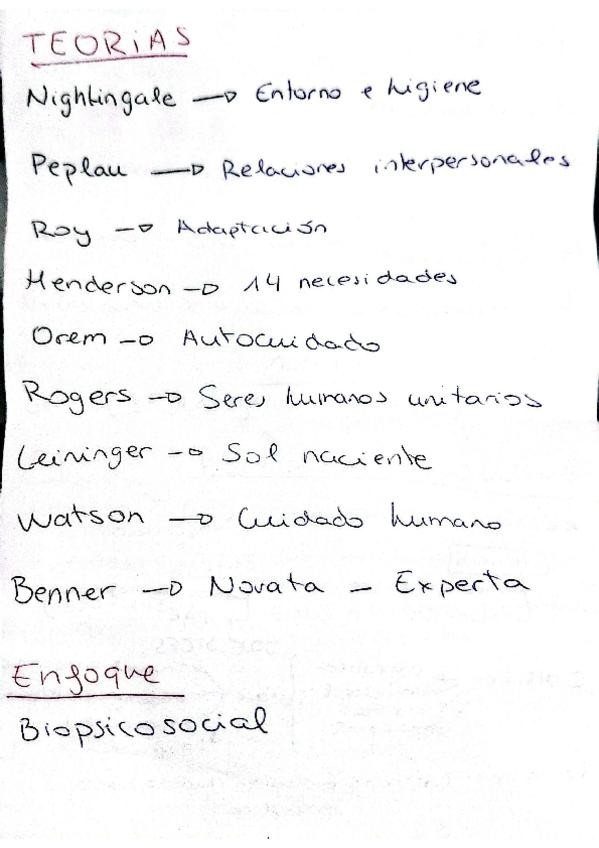 TEORIAS
Nightingale → Entorno e higiene
Peplau → Relaciones interpersonales
Roy → Adaptación
Henderson → 14 necesidades
Orem → Autocuidado
Rogers → Seres humanos unitarios
Leininger → Sol naciente
Watson → Cuidado humano
Benner → Novata - Experta
Enfoque
Biopsicosocial